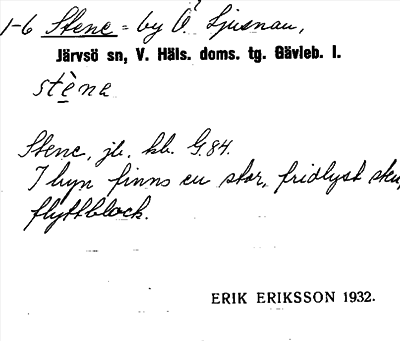 1-6 Stene = by Ö Ljusnan,
Järvsö sn, V. Häls. doms. tg. Gävleb. l.
stène
Stene, jb. kb. G.84.
I byn finns en stor, fridlyst
flyttblock.
ERIK ERIKSSON 1932.